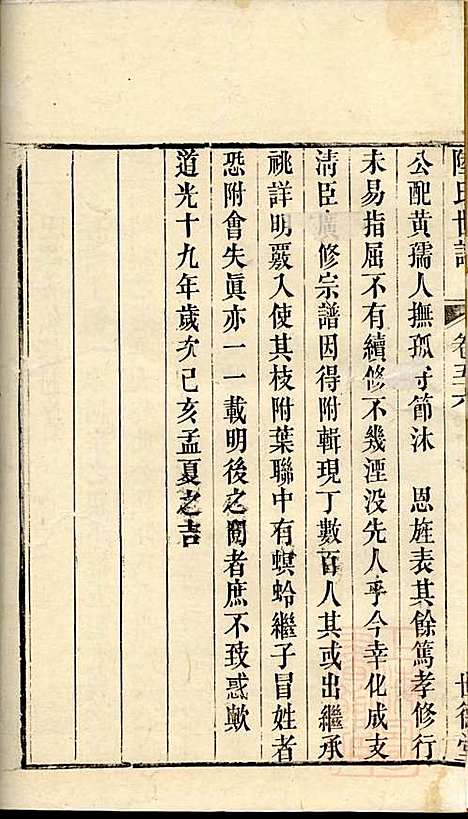 陸氏世譜 卷五六 世德堂
公配黃孺人撫孤守節沐 恩旌表其餘篤孝修行
未易指屈不有續修不幾湮没先人乎今幸化成支
清臣廣修宗譜因得附輯現丁數百人其或出繼承
祧詳明覈入使其枝附葉聯中有螟蛉繼子冒姓者
恐附會失眞亦一一載明後之閱者庶不致惑歟
道光十九年歲次己亥孟夏之吉